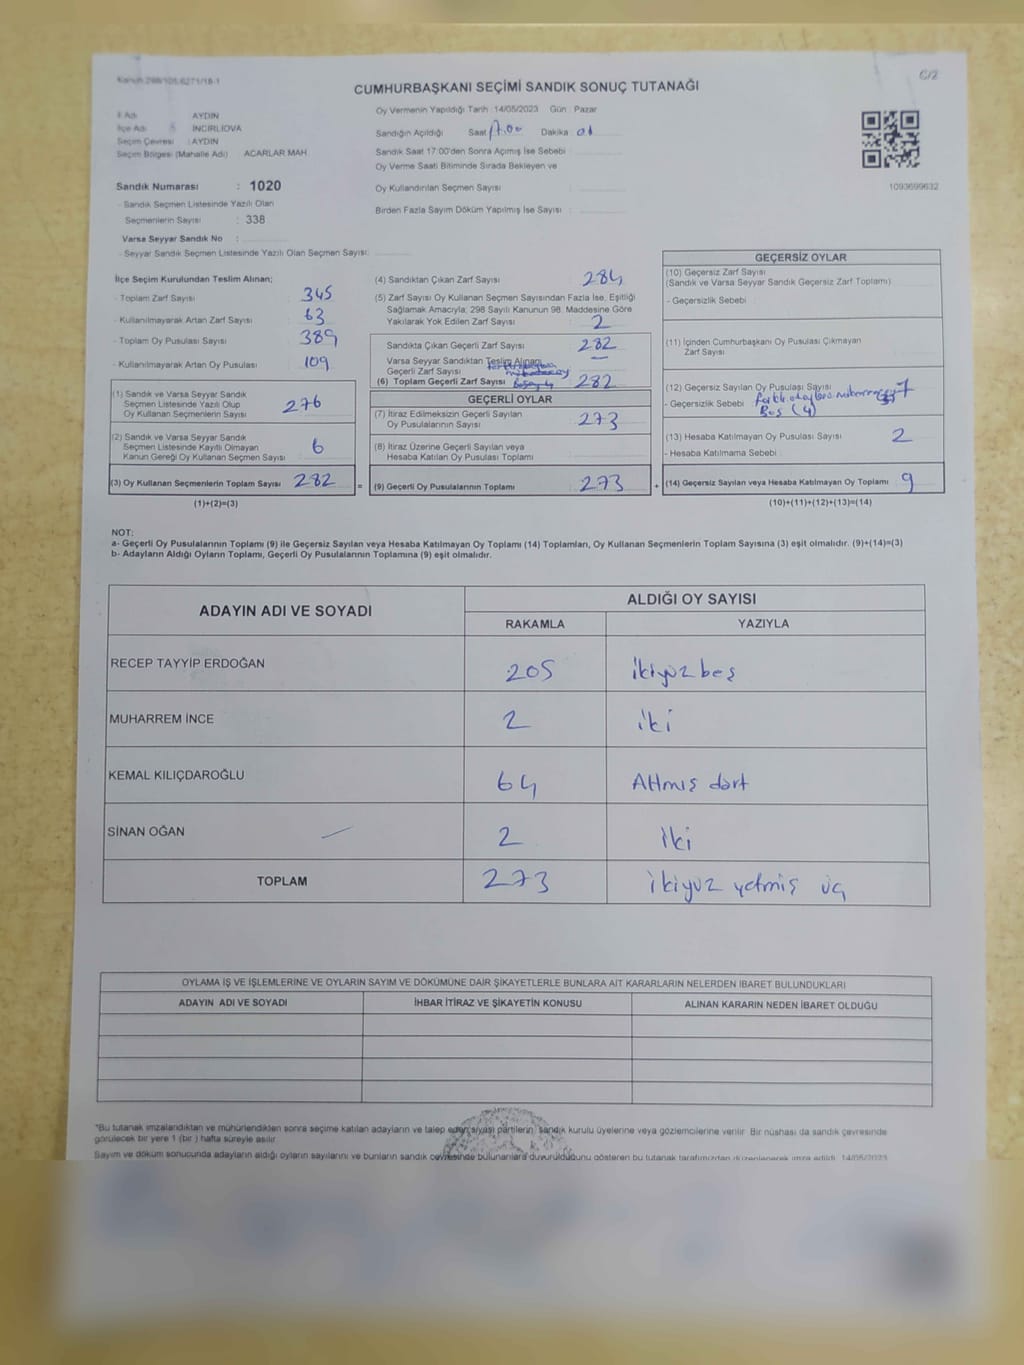 Kanun:298/105,6271/18-1
C/2
CUMHURBAŞKANI SEÇİMİ SANDIK SONUÇ TUTANAĞI
İl Adı AYDIN
İlçe Adı İNCİRLİOVA
Seçim Çevresi : AYDIN
Seçim Bölgesi (Mahalle Adı) ACARLAR MAH.
Oy Vermenin Yapıldığı Tarih : 14/05/2023 Gün : Pazar
Sandığın Açıldığı Saat 17.00 Dakika 01
Sandık Saat 17:00'den Sonra Açımış İse Sebebi :
Oy Verme Saati Bitiminde Sırada Bekleyen ve
Oy Kullandırılan Seçmen Sayısı :
Birden Fazla Sayım Döküm Yapılmış İse Sayısı :
1093699632
Sandık Numarası : 1020
- Sandık Seçmen Listesinde Yazılı Olan
Seçmenlerin Sayısı : 338
Varsa Seyyar Sandık No :
- Seyyar Sandık Seçmen Listesinde Yazılı Olan Seçmen Sayısı:
İlçe Seçim Kurulundan Teslim Alınan;
- Toplam Zarf Sayısı : 345
- Kullanılmayarak Artan Zarf Sayısı : 63
- Toplam Oy Pusulası Sayısı : 389
- Kullanılmayarak Artan Oy Pusulası : 109
(1) Sandık ve Varsa Seyyar Sandık
Seçmen Listesinde Yazılı Olup
Oy Kullanan Seçmenlerin Sayısı : 276
(2) Sandık ve Varsa Seyyar Sandık
Seçmen Listesinde Kayıtlı Olmayan
Kanun Gereği Oy Kullanan Seçmen Sayısı : 6
(3) Oy Kullanan Seçmenlerin Toplam Sayısı : 282 =
(1)+(2)=(3)
(4) Sandıktan Çıkan Zarf Sayısı : 284
(5) Zarf Sayısı Oy Kullanan Seçmen Sayısından Fazla İse, Eşitliği
Sağlamak Amacıyla; 298 Sayılı Kanunun 98. Maddesine Göre
Yakılarak Yok Edilen Zarf Sayısı : 2
Sandıkta Çıkan Geçerli Zarf Sayısı : 282
Varsa Seyyar Sandıktan Teslim Alınan
Geçerli Zarf Sayısı : —
(6) Toplam Geçerli Zarf Sayısı 282
GEÇERLİ OYLAR
(7) İtiraz Edilmeksizin Geçerli Sayılan
Oy Pusulalarının Sayısı : 273
(8) İtiraz Üzerine Geçerli Sayılan veya
Hesaba Katılan Oy Pusulası Toplamı :
(9) Geçerli Oy Pusulalarının Toplamı : 273 +
GEÇERSİZ OYLAR
(10) Geçersiz Zarf Sayısı
(Sandık ve Varsa Seyyar Sandık Geçersiz Zarf Toplamı)
- Geçersizlik Sebebi :
(11) İçinden Cumhurbaşkanı Oy Pusulası Çıkmayan
Zarf Sayısı :
(12) Geçersiz Sayılan Oy Pusulası Sayısı 7
- Geçersizlik Sebebi
Boş (4)
(13) Hesaba Katılmayan Oy Pusulası Sayısı : 2
- Hesaba Katılmama Sebebi :
(14) Geçersiz Sayılan veya Hesaba Katılmayan Oy Toplamı : 9
(10)+(11)+(12)+(13)=(14)
NOT:
a- Geçerli Oy Pusulalarının Toplamı (9) ile Geçersiz Sayılan veya Hesaba Katılmayan Oy Toplamı (14) Toplamları, Oy Kullanan Seçmenlerin Toplam Sayısına (3) eşit olmalıdır. (9)+(14)=(3)
b- Adayların Aldığı Oyların Toplamı, Geçerli Oy Pusulalarının Toplamına (9) eşit olmalıdır.
ADAYIN ADI VE SOYADI ALDIĞI OY SAYISI
RAKAMLA YAZIYLA
RECEP TAYYİP ERDOĞAN 205 ikiyüz beş
MUHARREM İNCE 2 iki
KEMAL KILIÇDAROĞLU 64 Altmış dört
SİNAN OĞAN 2 iki
TOPLAM 273 ikiyüz yetmiş üç
OYLAMA İŞ VE İŞLEMLERİNE VE OYLARIN SAYIM VE DÖKÜMÜNE DAİR ŞİKAYETLERLE BUNLARA AİT KARARLARIN NELERDEN İBARET BULUNDUKLARI
ADAYIN ADI VE SOYADI İHBAR İTİRAZ VE ŞİKAYETİN KONUSU ALINAN KARARIN NEDEN İBARET OLDUĞU
*Bu tutanak imzalandıktan ve mühürlendikten sonra seçime katılan adayların ve talep eden siyasi partilerin, sandık kurulu üyelerine veya gözlemcilerine verilir. Bir nüshası da sandık çevresinde
görülecek bir yere 1 (bir ) hafta süreyle asılır.
Sayım ve döküm sonucunda adayların aldığı oyların sayılarını ve bunların sandık çevresinde bulunanlara duyurulduğunu gösteren bu tutanak tarafımızdan düzenlenerek imza edildi. 14/05/2023